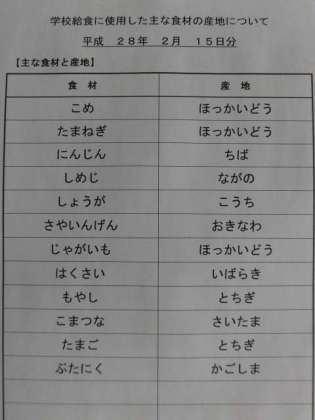 学校給食に使用した主な食材の産地について
平成　２８年　２月　１５日分
【主な食材と産地】
食　材　産　地
こめ　ほっかいどう
たまねぎ　ほっかいどう
にんじん　ちば
しめじ　ながの
しょうが　こうち
さやいんげん　おきなわ
じゃがいも　ほっかいどう
はくさい　いばらき
もやし　とちぎ
こまつな　さいたま
たまご　とちぎ
ぶたにく　かごしま